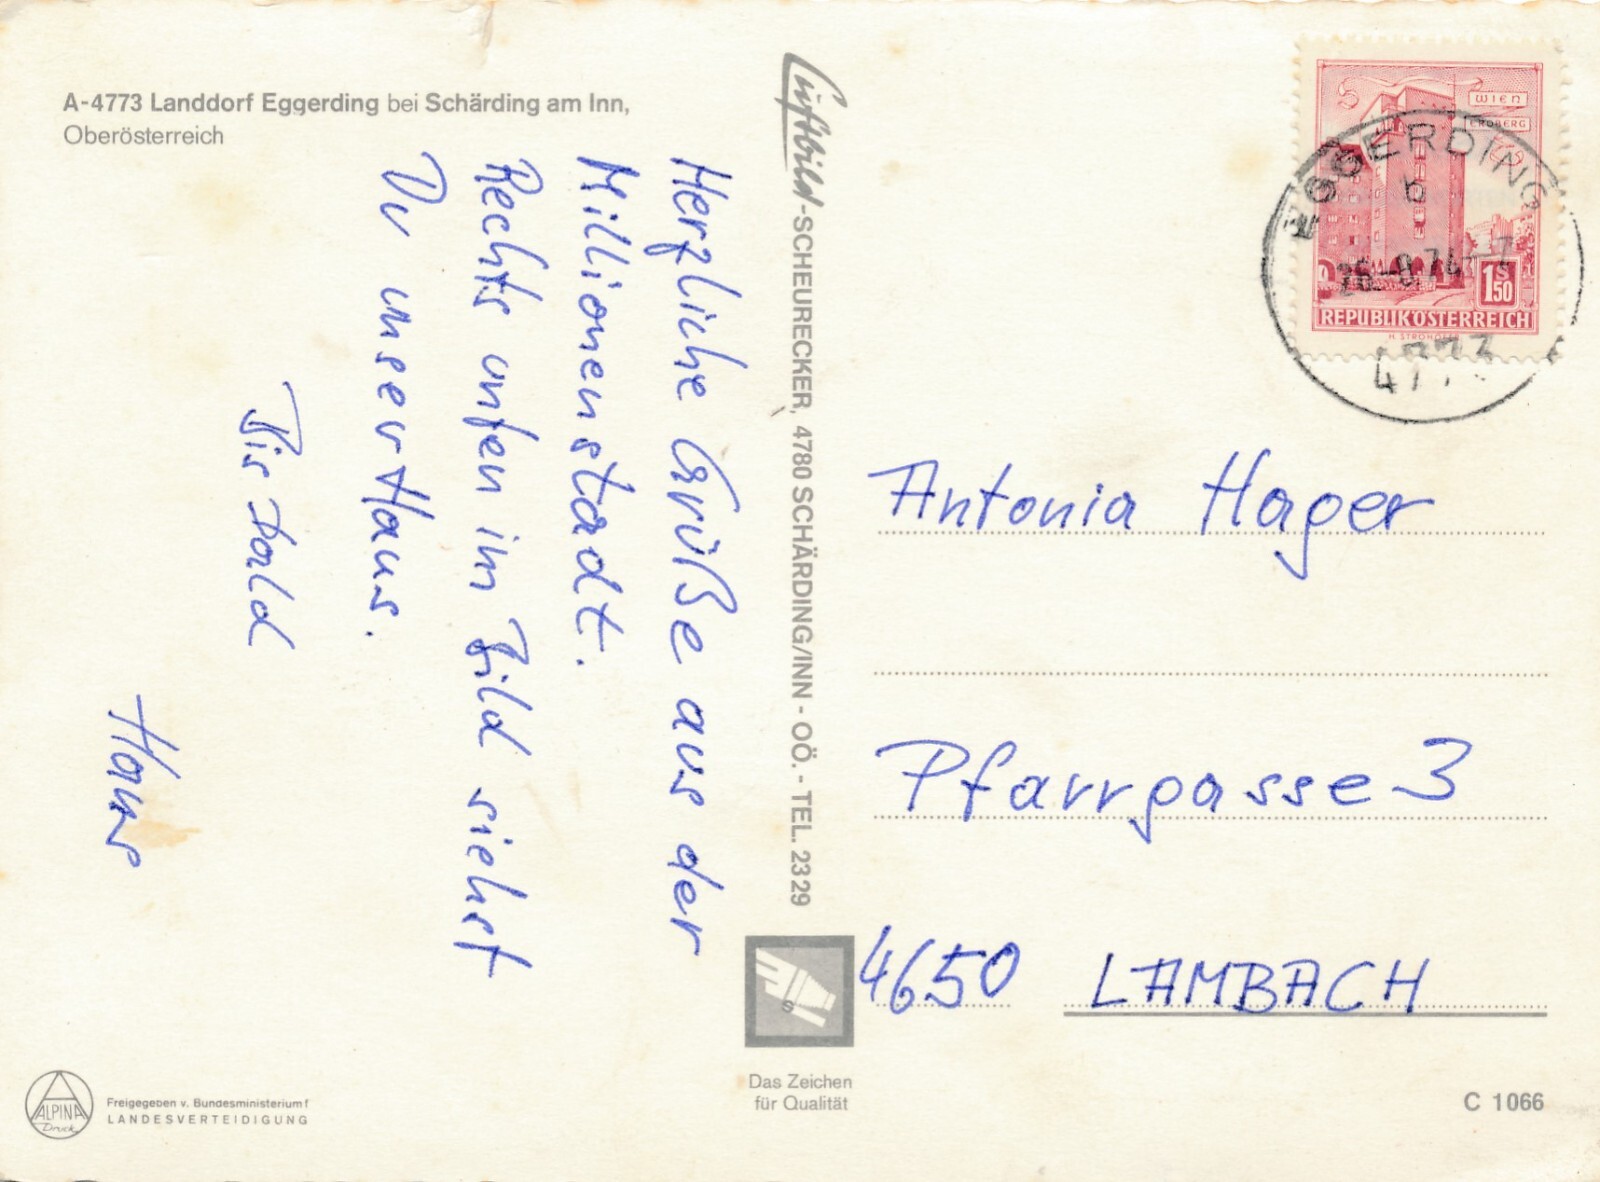 A-4773 Landdorf Eggerding bei Schärding am Inn,
Oberösterreich
Herzliche Grüße aus der
Millionenstadt.
Rechts unten im Bild siehst
Du unser Haus.
Bis bald
Hans
Luftbild-SCHEURECKER, 4780 SCHÄRDING/INN - OÖ. - TEL. 2329
S
Das Zeichen
für Qualität
WIEN
ERDBERG
1S50
REPUBLIK ÖSTERREICH
EGGERDING
b
4773
Antonia Hager
Pfarrgasse 3
4650 LAMBACH
ALPINA
Druck
Freigegeben v. Bundesministerium f
LANDESVERTEIDIGUNG
C 1066